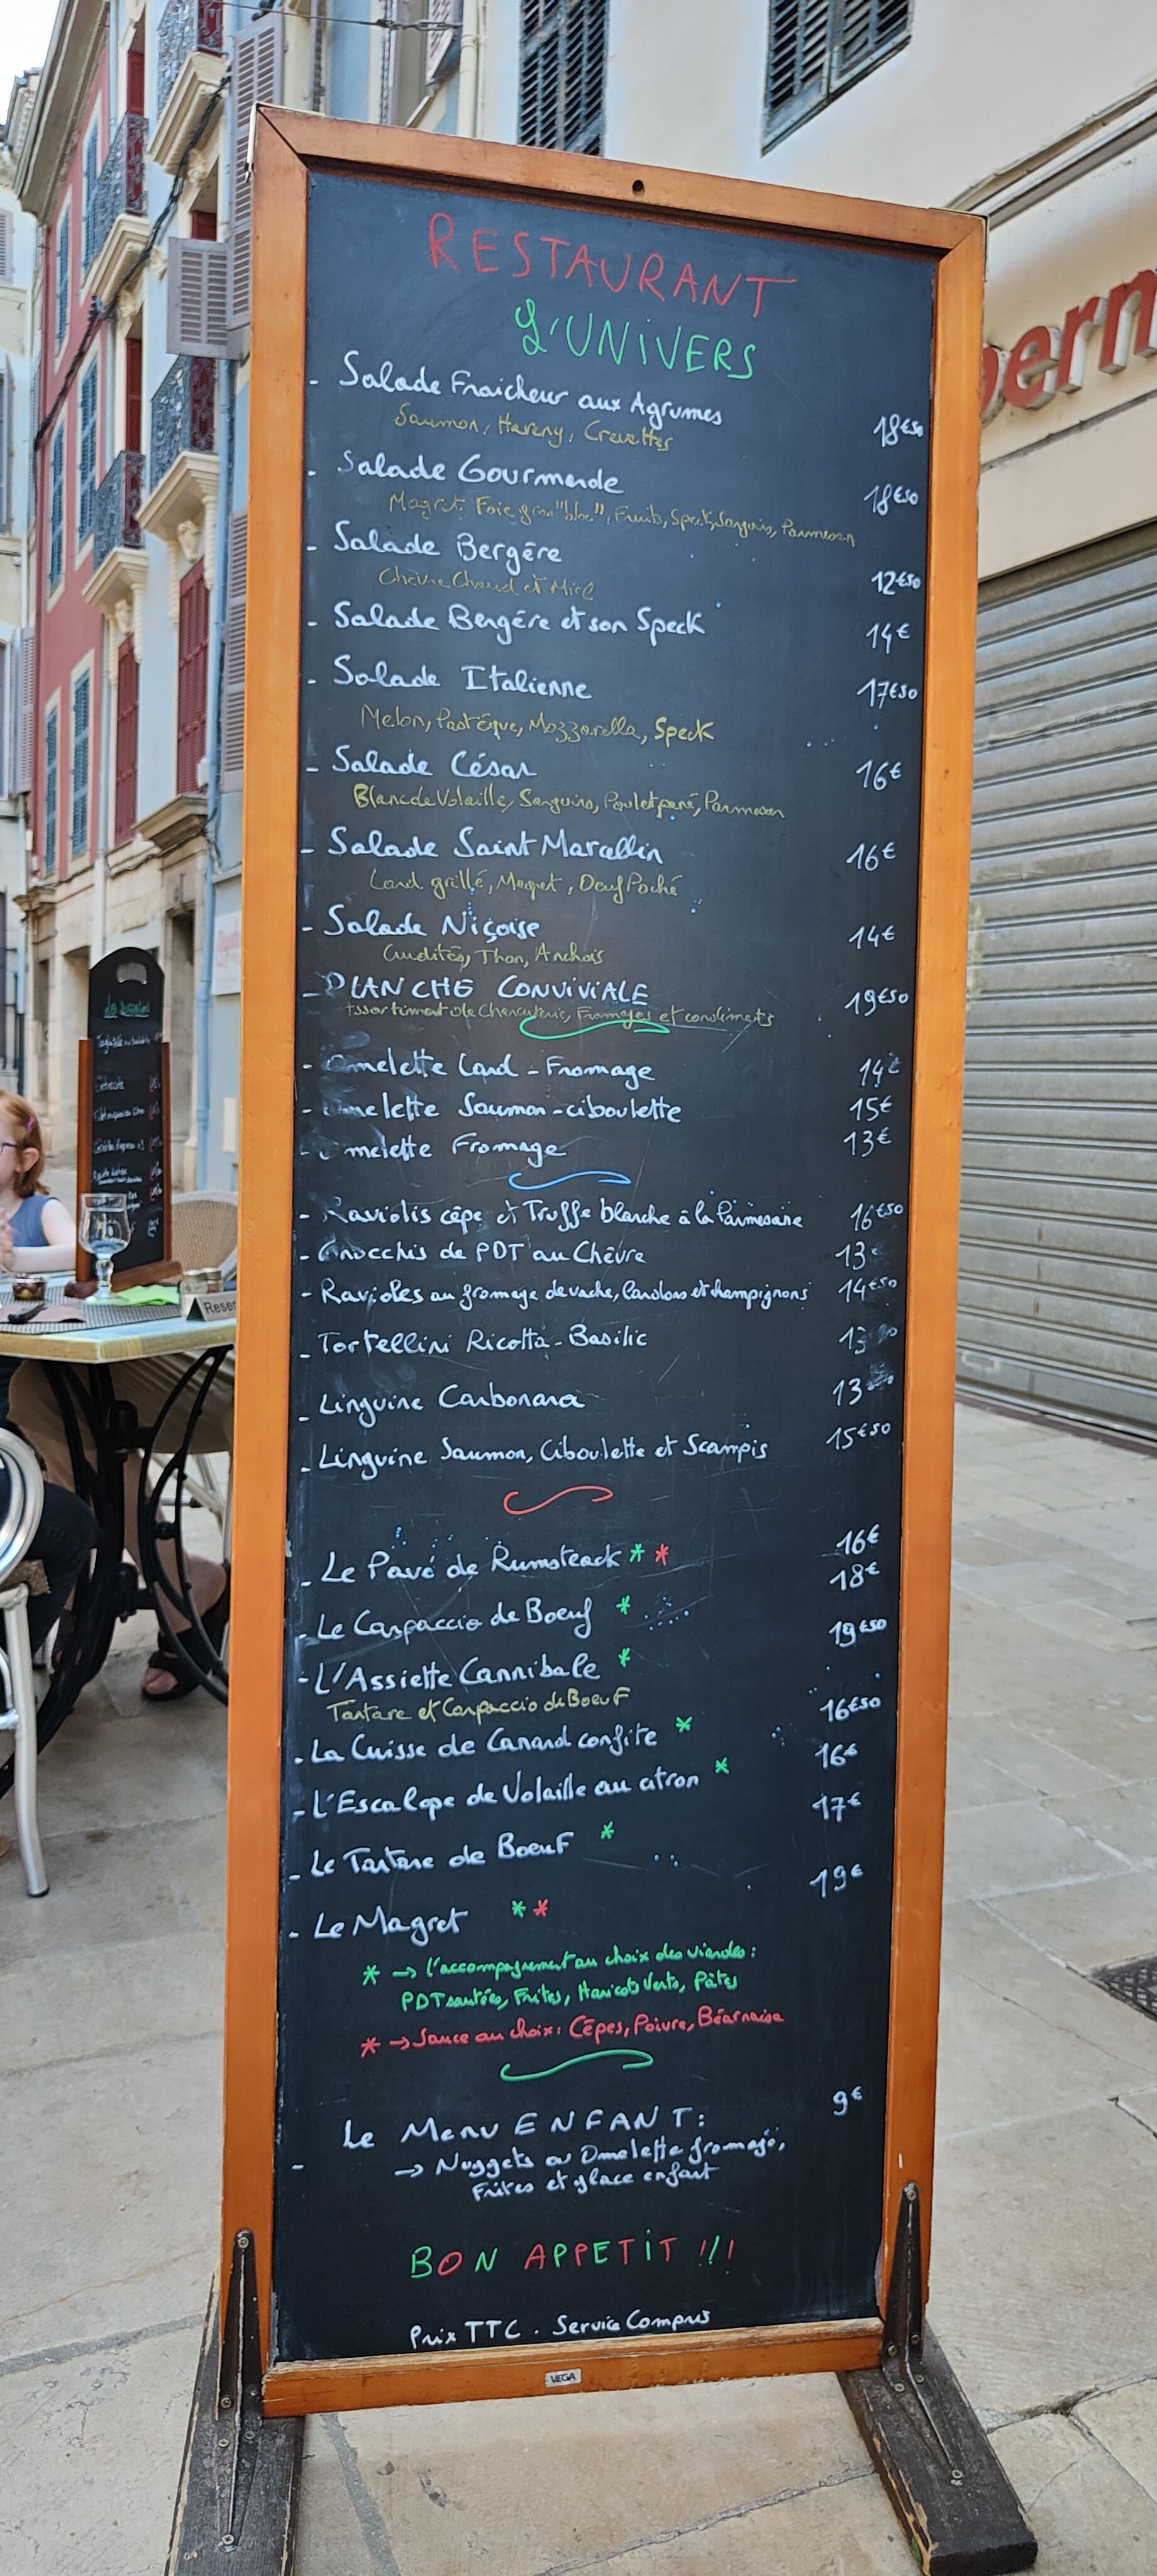 RESTAURANT
L'UNIVERS
- Salade Fraicheur aux Agrumes 18€50
Saumon, Hareng, Crevettes
- Salade Gourmande 18€50
Magret, Foie gras "bloc", Fruits, Speck, Sanguin, Parmesan
- Salade Bergère 12€50
Chèvre Chaud et Miel
- Salade Bergère et son Speck 14€
- Salade Italienne 17€50
Melon, Pastèque, Mozzarella, Speck
- Salade César 16€
Blanc de Volaille, Sanguins, Poulet pané, Parmesan
- Salade Saint Marcellin 16€
Lard grillé, Magret, Oeuf Poché
- Salade Niçoise 14€
Crudités, Thon, Anchois
- PLANCHE CONVIVIALE 19€50
Assortiment de Charcuterie, Fromages et condiments
- Omelette Lard - Fromage 14€
- Omelette Saumon - ciboulette 15€
- Omelette Fromage 13€
- Raviolis cêpe et Truffe blanche à la Parmesane 16€50
- Gnocchis de PDT au Chèvre 13€
- Ravioles au fromage de vache, lardons et champignons 14€50
- Tortellini Ricotta - Basilic 13
- Linguine Carbonara 13
- Linguine Saumon, Ciboulette et Scampis 15€50
- Le Pavé de Rumsteack * * 16€
- Le Carpaccio de Boeuf * 18€
- L'Assiette Cannibale * 19€50
Tartare et Carpaccio de Boeuf
- La Cuisse de Canard confite * 16€50
- L'Escalope de Volaille au citron * 16€
- Le Tartare de Boeuf * 17€
- Le Magret * * 19€
* → l'accompagnement au choix des viandes :
PDT sautées, Frites, Haricots Verts, Pâtes
* → Sauce au choix : Cêpes, Poivre, Béarnaise
- Le Menu ENFANT : 9€
→ Nuggets ou Omelette fromage,
Frites et glace enfant
BON APPETIT !!!
Prix TTC . Service Compris
VEGA
Reser
perm